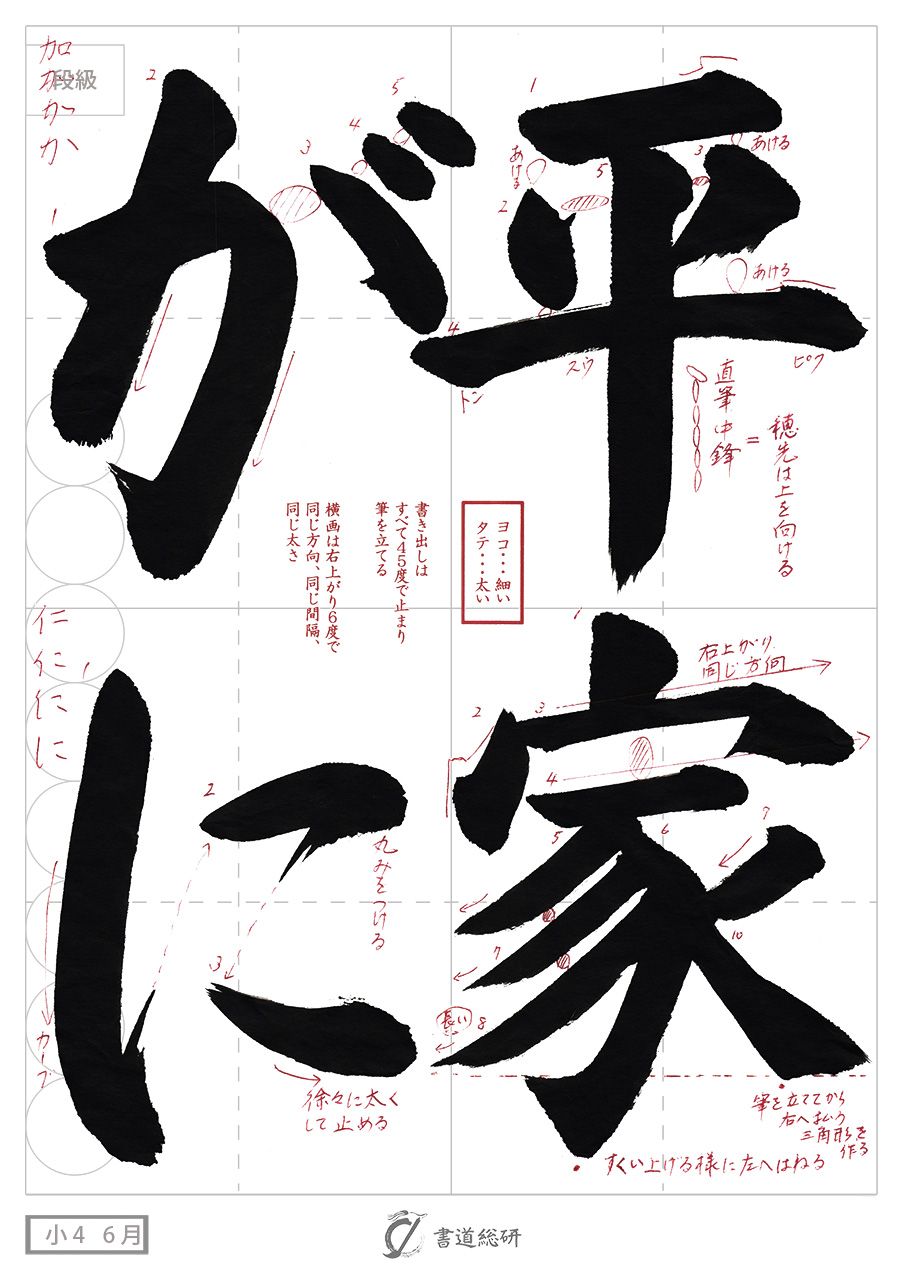 平家
がに
段級
加
か
か
か
仁
に
に
に
1
2
3
4
5
あける
あける
あける
トン
スウ
ピタ
直筆中鋒
=
穂先は上を向ける
ヨコ・・・細い
タテ・・・太い
書き出しは
すべて45度で止まり
筆を立てる
横画は右上がり6度で
同じ方向、同じ間隔、
同じ太さ
1
2
3
4
5
1
2
3
4
5
6
7
7
8
10
右上がり
同じ方向
長い
筆を立ててから
右へ払う
三角形を
作る
・すくい上げる様に左へはねる
1
2
3
丸みをつける
カーブ
徐々に太く
して止める
小4 6月
書道総研